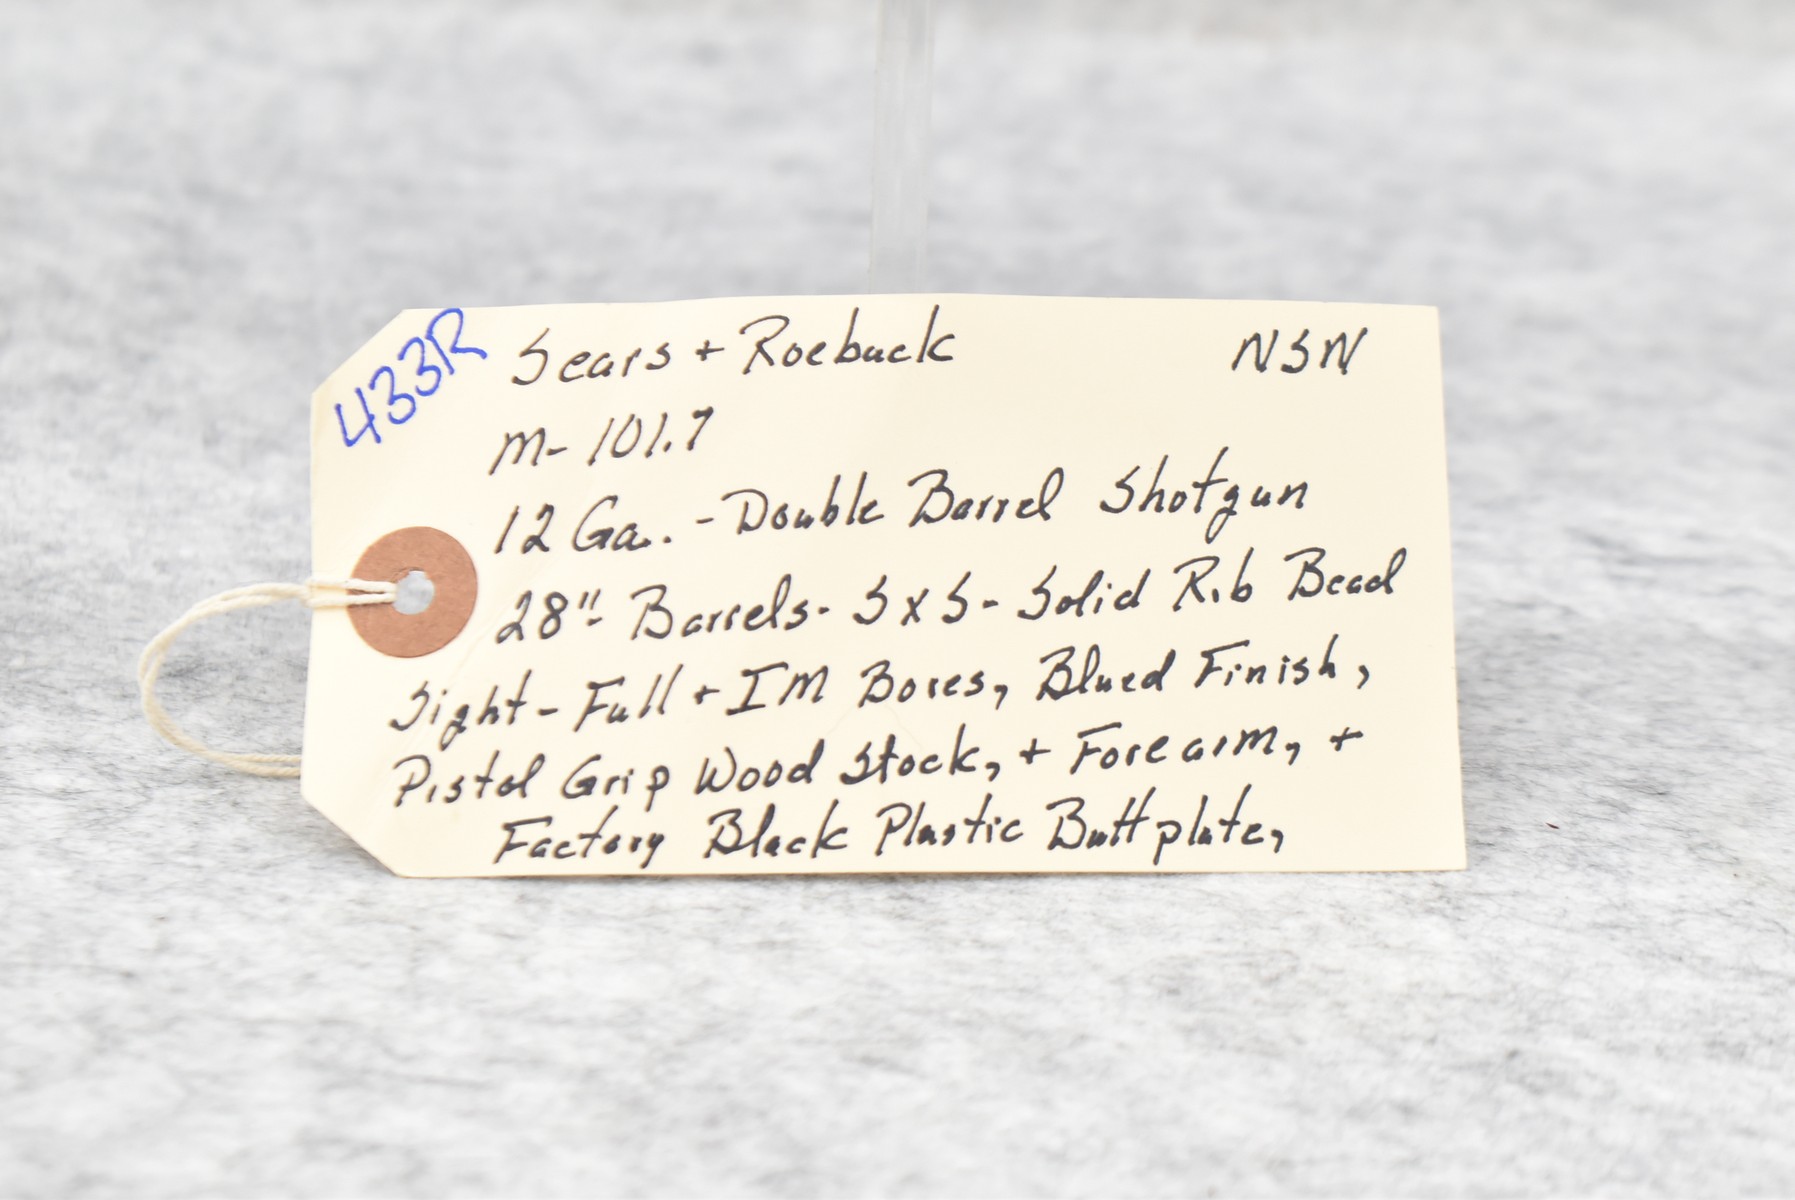 433R
Sears + Roebuck NSN
M- 101.7
12 Ga. - Double Barrel Shotgun
28"- Barrels - S x S - Solid Rib Bead
Sight - Full + IM Bores, Blued Finish,
Pistol Grip Wood Stock, + Forearm, +
Factory Black Plastic Buttplate,